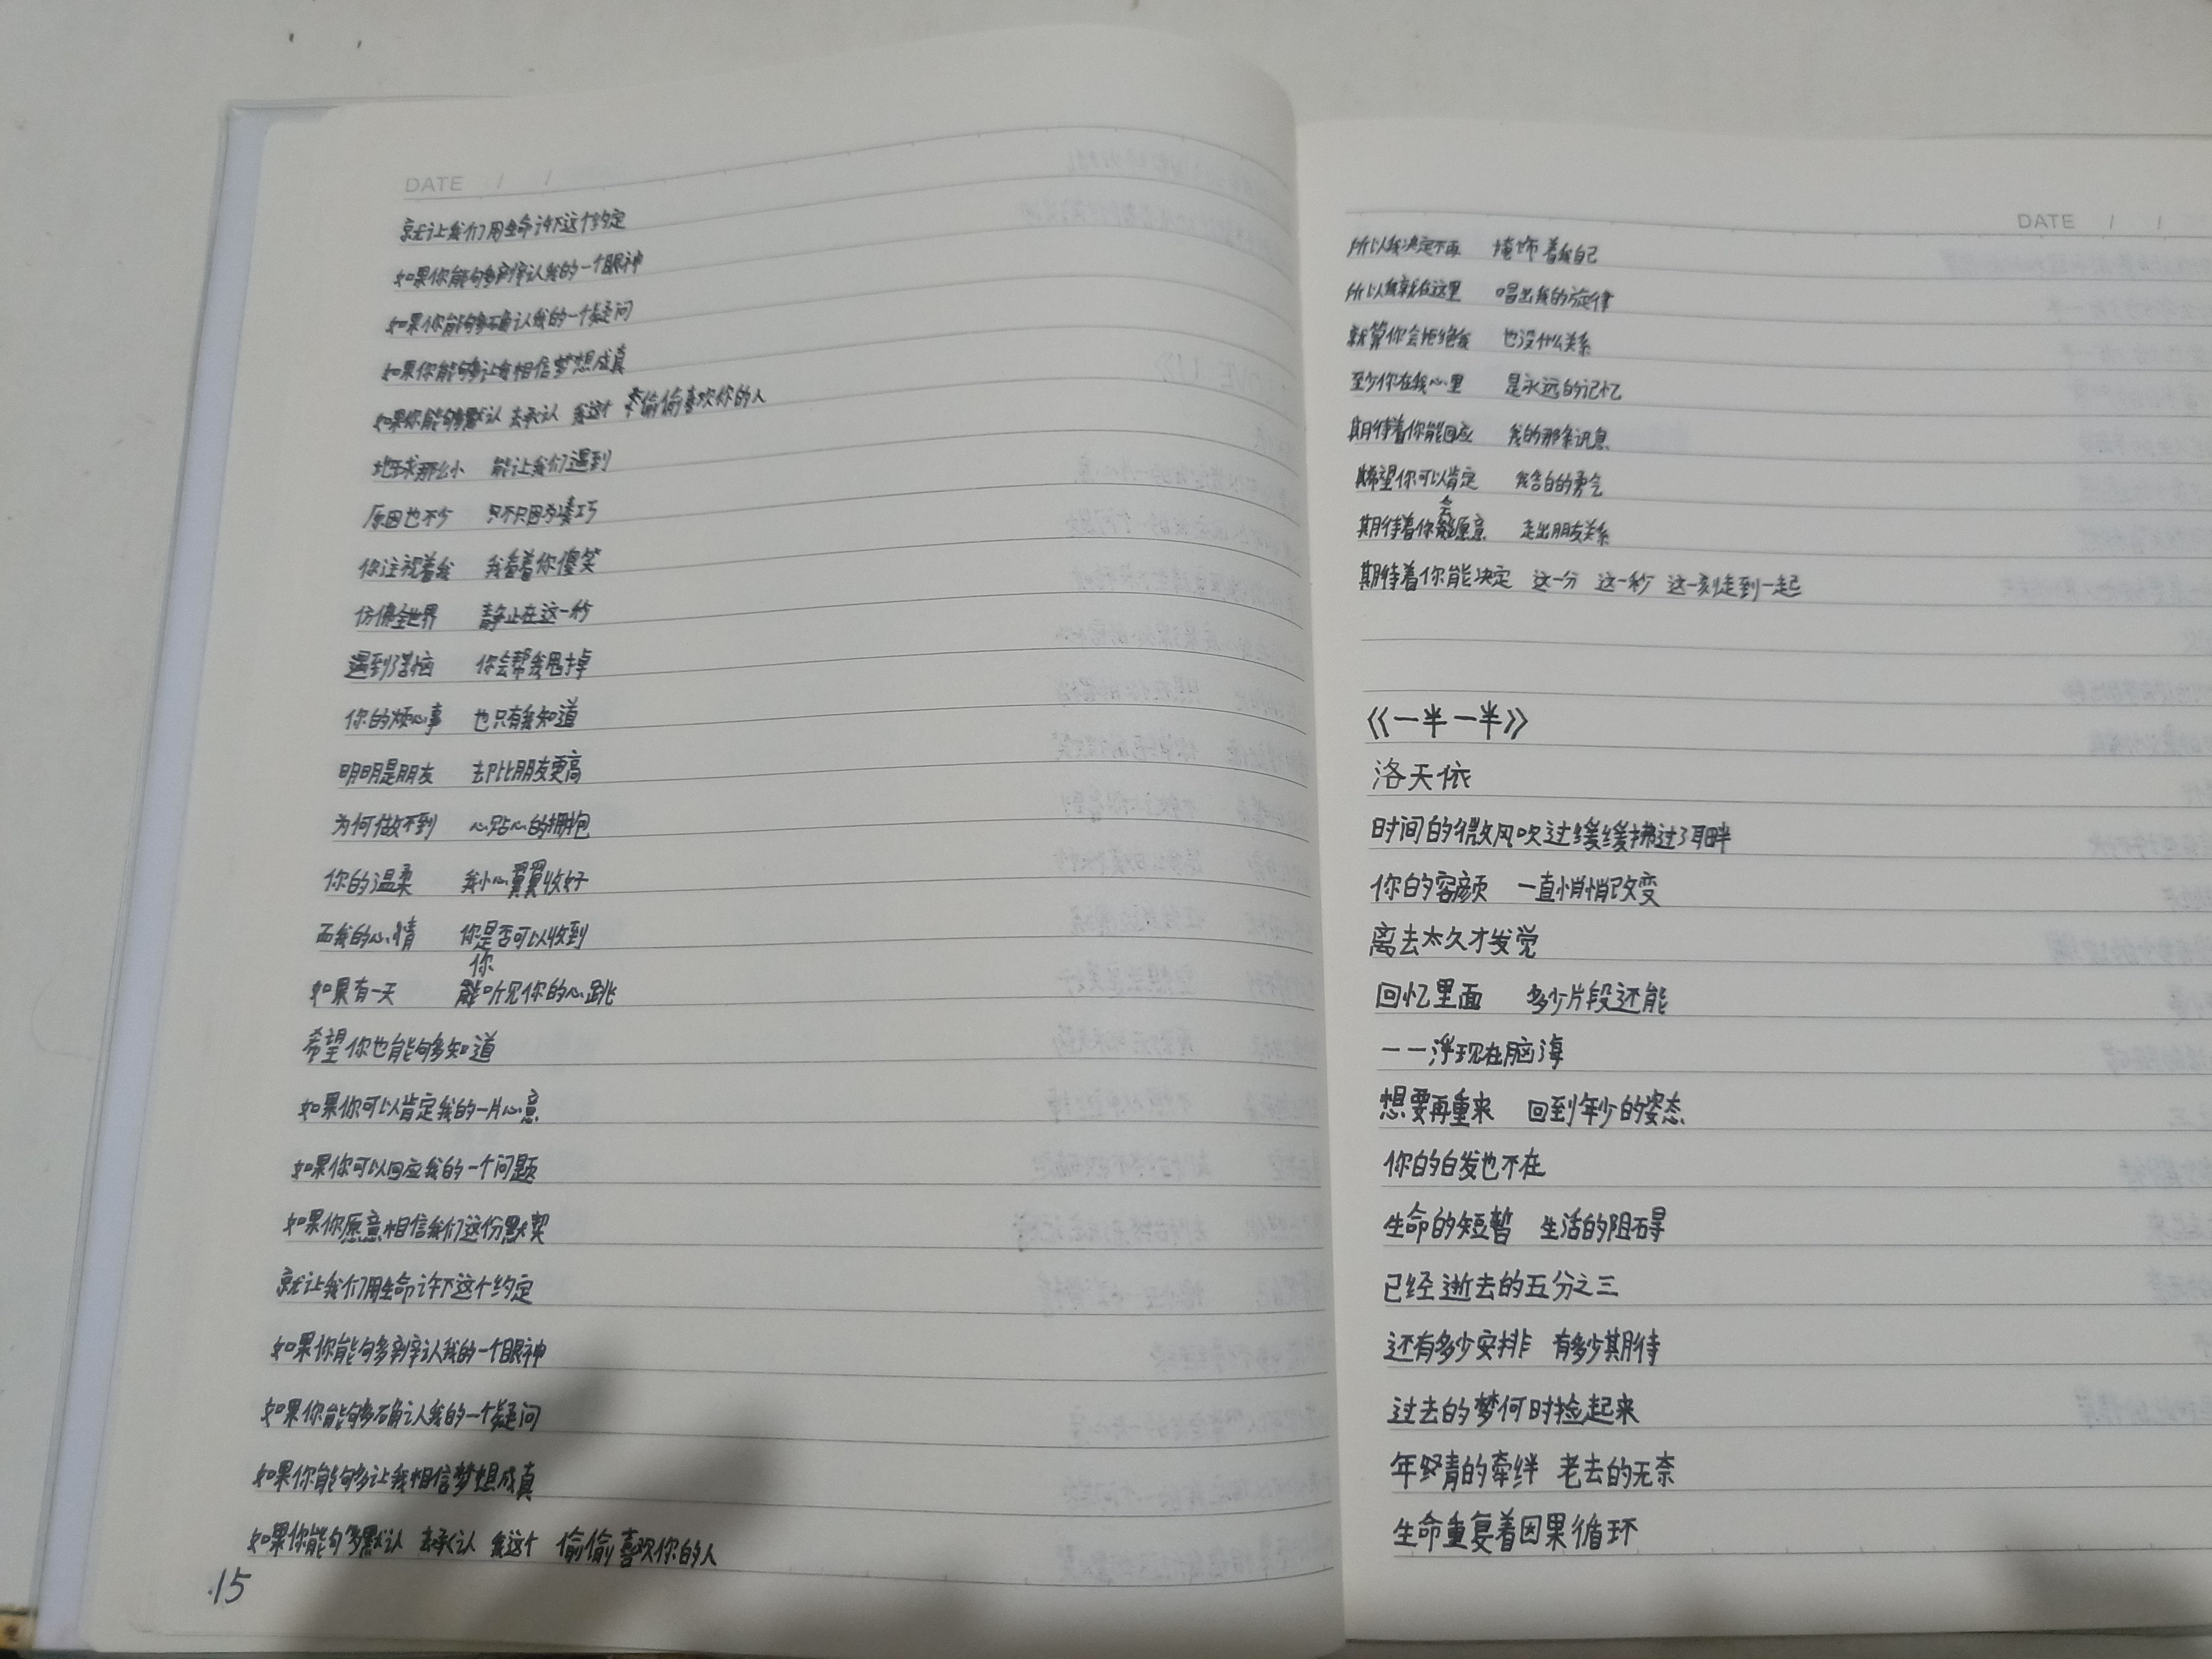 DATE / /
就让我们用生命许下这个约定
如果你能够多辨认我的一个眼神
如果你能够多确认我的一个疑问
如果你能够让我相信梦想成真
如果你能够默认 去承认 我这个 偷偷喜欢你的人
地球那么小 能让我们遇到
原因也不少 只不只因为凑巧
你注视着我 我看着你傻笑
仿佛全世界 静止在这一秒
遇到了苦恼 你会帮我甩掉
你的烦心事 也只有我知道
明明是朋友 却比朋友更高
为何做不到 心贴心的拥抱
你的温柔 我小心翼翼收好
而我的心情 你是否可以收到
如果有一天 你能听见你的心跳
希望你也能够多知道
如果你可以肯定我的一片心意
如果你可以回应我的一个问题
如果你愿意相信我们这份默契
就让我们用生命许下这个约定
如果你能够多辨认我的一个眼神
如果你能够多确认我的一个疑问
如果你能够多让我相信梦想成真
如果你能够多默认 去承认 我这个 偷偷喜欢你的人
15
DATE / /
所以我决定不再 掩饰着我自己
所以我就在这里 唱出我的旋律
就算你会拒绝我 也没什么关系
至少你在我心里 是永远的记忆
期待着你能回应 我的那条讯息
希望你可以肯定 我告白的勇气
期待着你会愿意 走出朋友关系
期待着你能决定 这一分 这一秒 这一刻走到一起
《一半一半》
洛天依
时间的微风吹过缓缓拂过了耳畔
你的容颜 一直悄悄改变
离去太久才发觉
回忆里面 多少片段还能
一一浮现在脑海
想要再重来 回到年少的姿态
你的白发也不在
生命的短暂 生活的阻碍
已经逝去的五分之三
还有多少安排 有多少期待
过去的梦何时捡起来
年轻的牵绊 老去的无奈
生命重复着因果循环